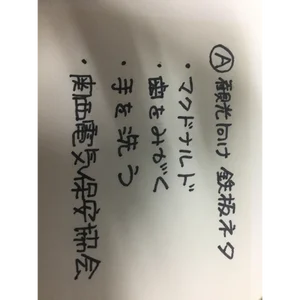 Ⓐ 観光向け 鉄板ネタ
・マクドナルド
・歯をみがく
・手を洗う
・関西電気保安協会